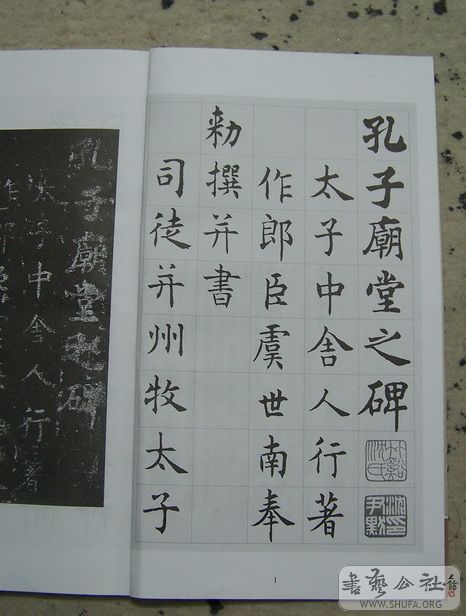 孔子廟堂之碑
竹谿沈氏
沈印尹默
太子中舍人行著
作郎臣虞世南奉
勑撰并書
司徒并州牧太子
1
孔子廟堂之碑
太子中舍人行著
作郎臣
書藝公社
WWW.SHUFA.ORG